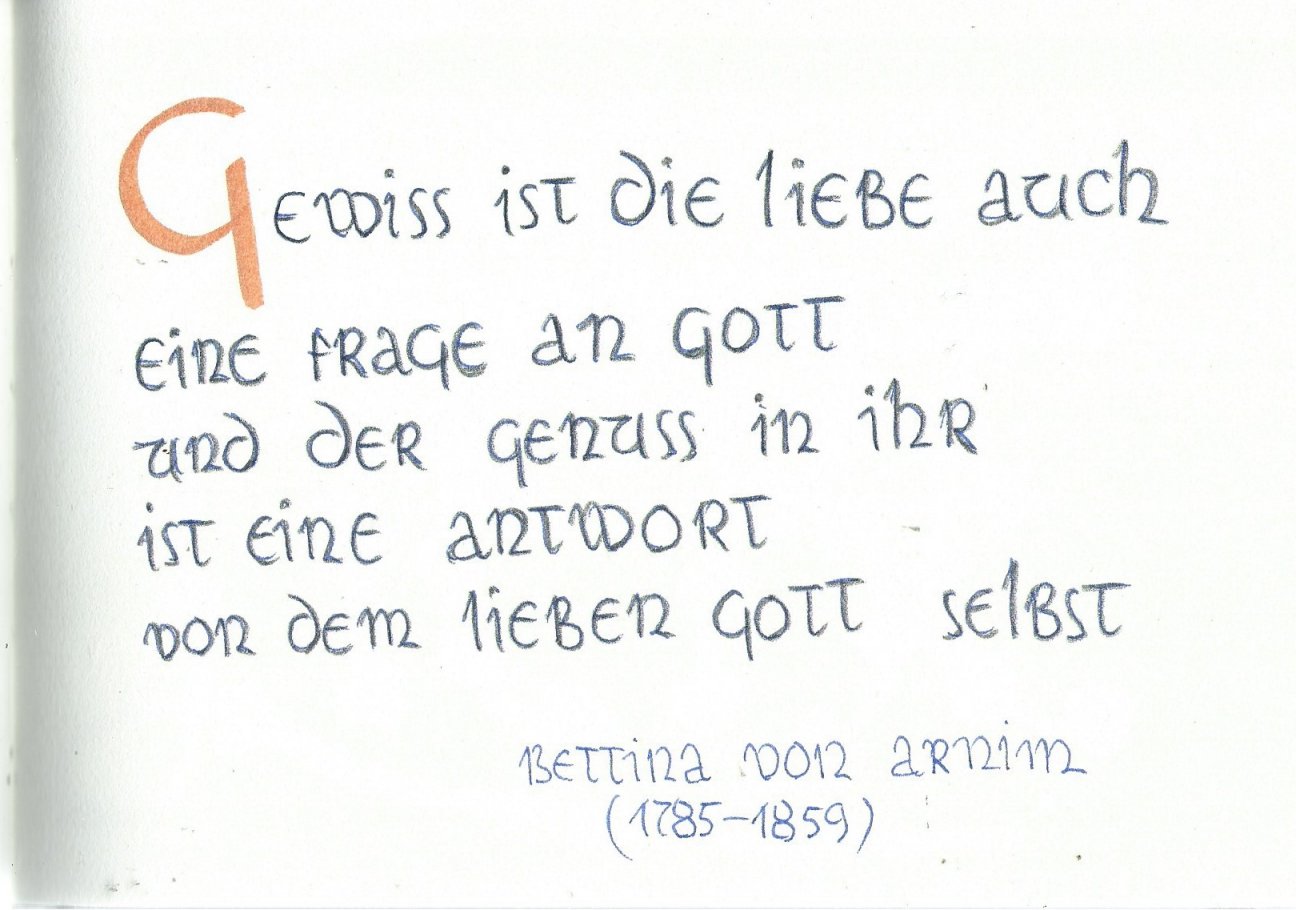 Gewiss ist die liebe auch
eine frage an Gott
und der Genuss in ihr
ist eine antwort
von dem lieben Gott selbst
Bettina von arnim
(1785-1859)